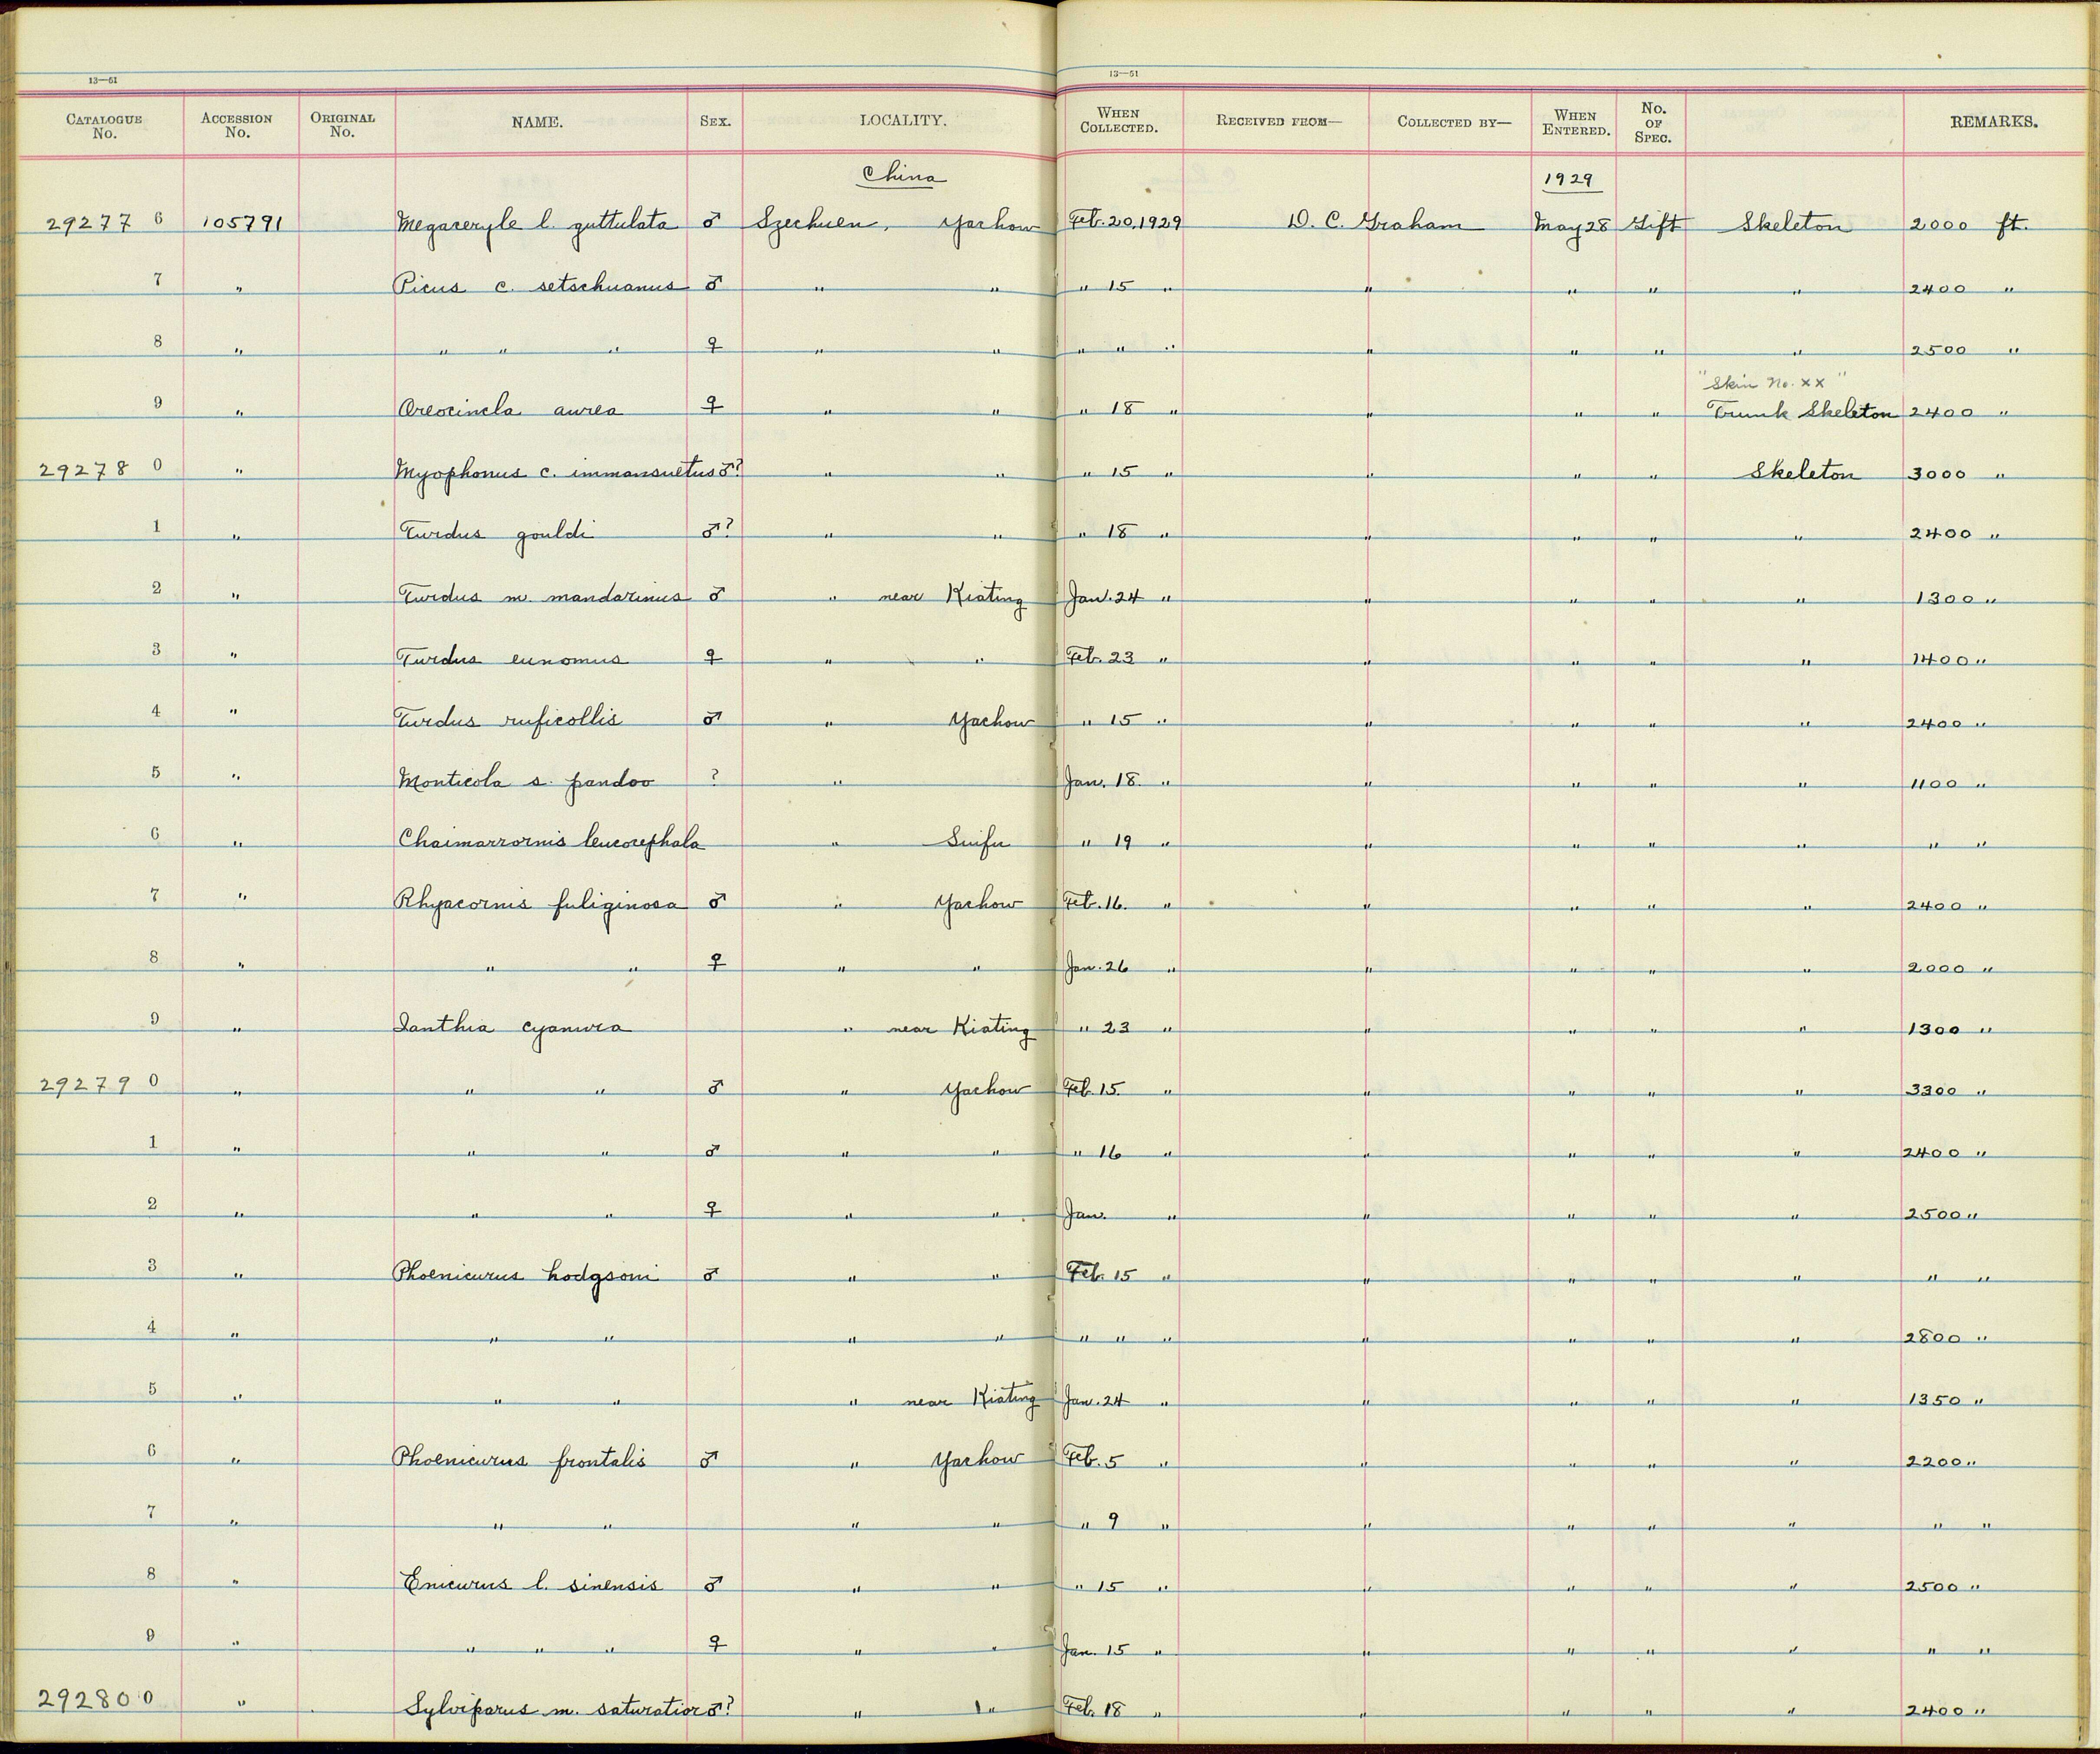 13—61 13—61
CATALOGUE No. ACCESSION No. ORIGINAL No. NAME. SEX. LOCALITY. WHEN COLLECTED. RECEIVED FROM— COLLECTED BY— WHEN ENTERED. No. OF SPEC. REMARKS.
China 1929
29277 6 105791 Megaceryle l. guttulata ♂ Szechuen, Yachow Feb. 20, 1929 D. C. Graham May 28 Gift Skeleton 2000 ft.
7 " Picus c. setschuanus ♂ " " " 15 " " " " " 2400 "
8 " " " " ♀ " " " " " " " " " 2500 "
"Skin No. xx"
9 " Oreocincla aurea ♀ " " " 18 " " " " Trunk Skeleton 2400 "
29278 0 " Myophonus c. immansuetus ♂? " " " 15 " " " " Skeleton 3000 "
1 " Turdus gouldi ♂? " " " 18 " " " " " 2400 "
2 " Turdus m. mandarinus ♂ " near Kiating Jan. 24 " " " " " 1300 "
3 " Turdus eunomus ♀ " " Feb. 23 " " " " " 1400 "
4 " Turdus ruficollis ♂ " Yachow " 15 " " " " " 2400 "
5 " Monticola s. pandoo ? " Jan. 18. " " " " " 1100 "
6 " Chaimarrornis leucocephala " Suifu " 19 " " " " " " "
7 " Rhyacornis fuliginosa ♂ " Yachow Feb. 16. " " " " " 2400 "
8 " " " ♀ " " Jan. 26 " " " " " 2000 "
9 " Ianthia cyanura " near Kiating " 23 " " " " " 1300 "
29279 0 " " " ♂ " Yachow Feb. 15. " " " " " 3300 "
1 " " " ♂ " " " 16 " " " " " 2400 "
2 " " " ♀ " " Jan. " " " " " 2500 "
3 " Phoenicurus hodgsoni ♂ " " Feb. 15 " " " " " " "
4 " " " " " " " " " " " " 2800 "
5 " " " " near Kiating Jan. 24 " " " " " 1350 "
6 " Phoenicurus frontalis ♂ " Yachow Feb. 5 " " " " " 2200 "
7 " " " " " " 9 " " " " " " "
8 " Enicurus l. sinensis ♂ " " " 15 " " " " " 2500 "
9 " " " " ♀ " " Jan. 15 " " " " " " "
29280 0 " Sylviparus m. saturatior ♂? " " Feb. 18 " " " " " 2400 "